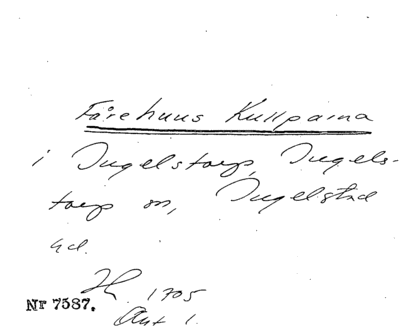 Fårehuus Kullparna
i Ingelstorp, Ingels-
torp sn, Ingelstad
hd.
1705
Akt 1.
Nr 7587.